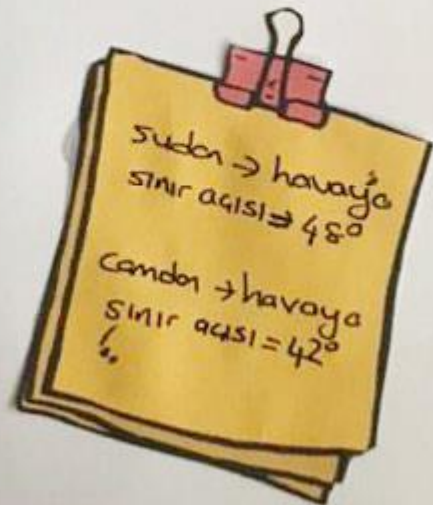 sudan → havaya
sınır açısı ⇒ 48°
camdan → havaya
sınır açısı = 42°